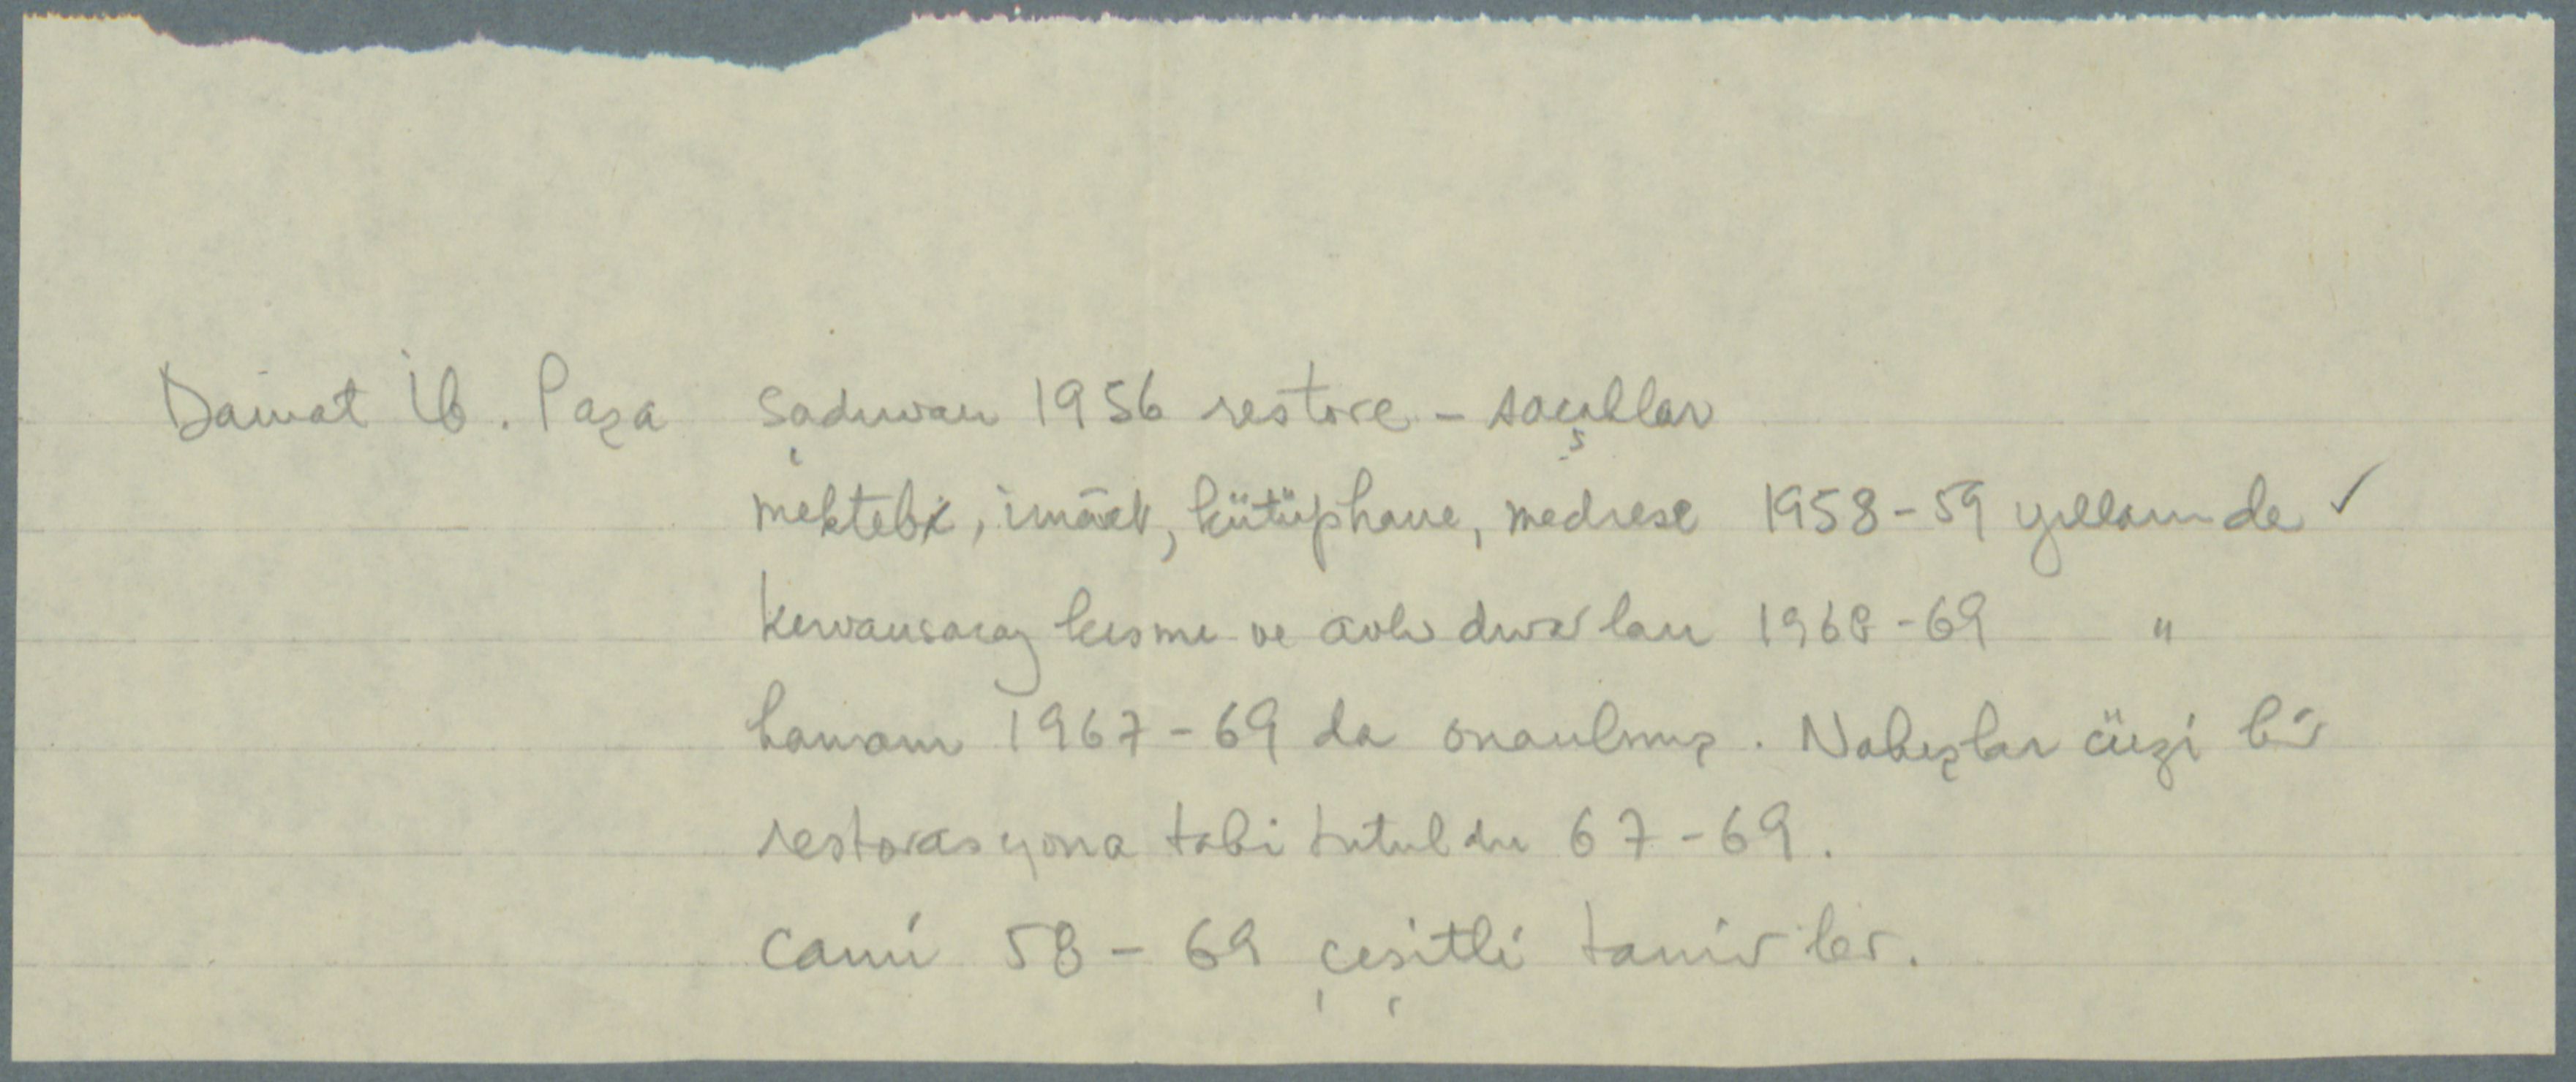 Damat İb. Paşa şadırvan 1956 restore - saçaklar
mektebi, imâret, kütüphane, medrese 1958-59 yıllarında ✓
Kervansaray kısmı ve avlu duvarları 1968-69 "
hamam 1967-69 da onarılmış. Nakışlar cüzi bir
restorasyona tabi tutuldu 67-69.
Cami 58-69 çeşitli tamirler.